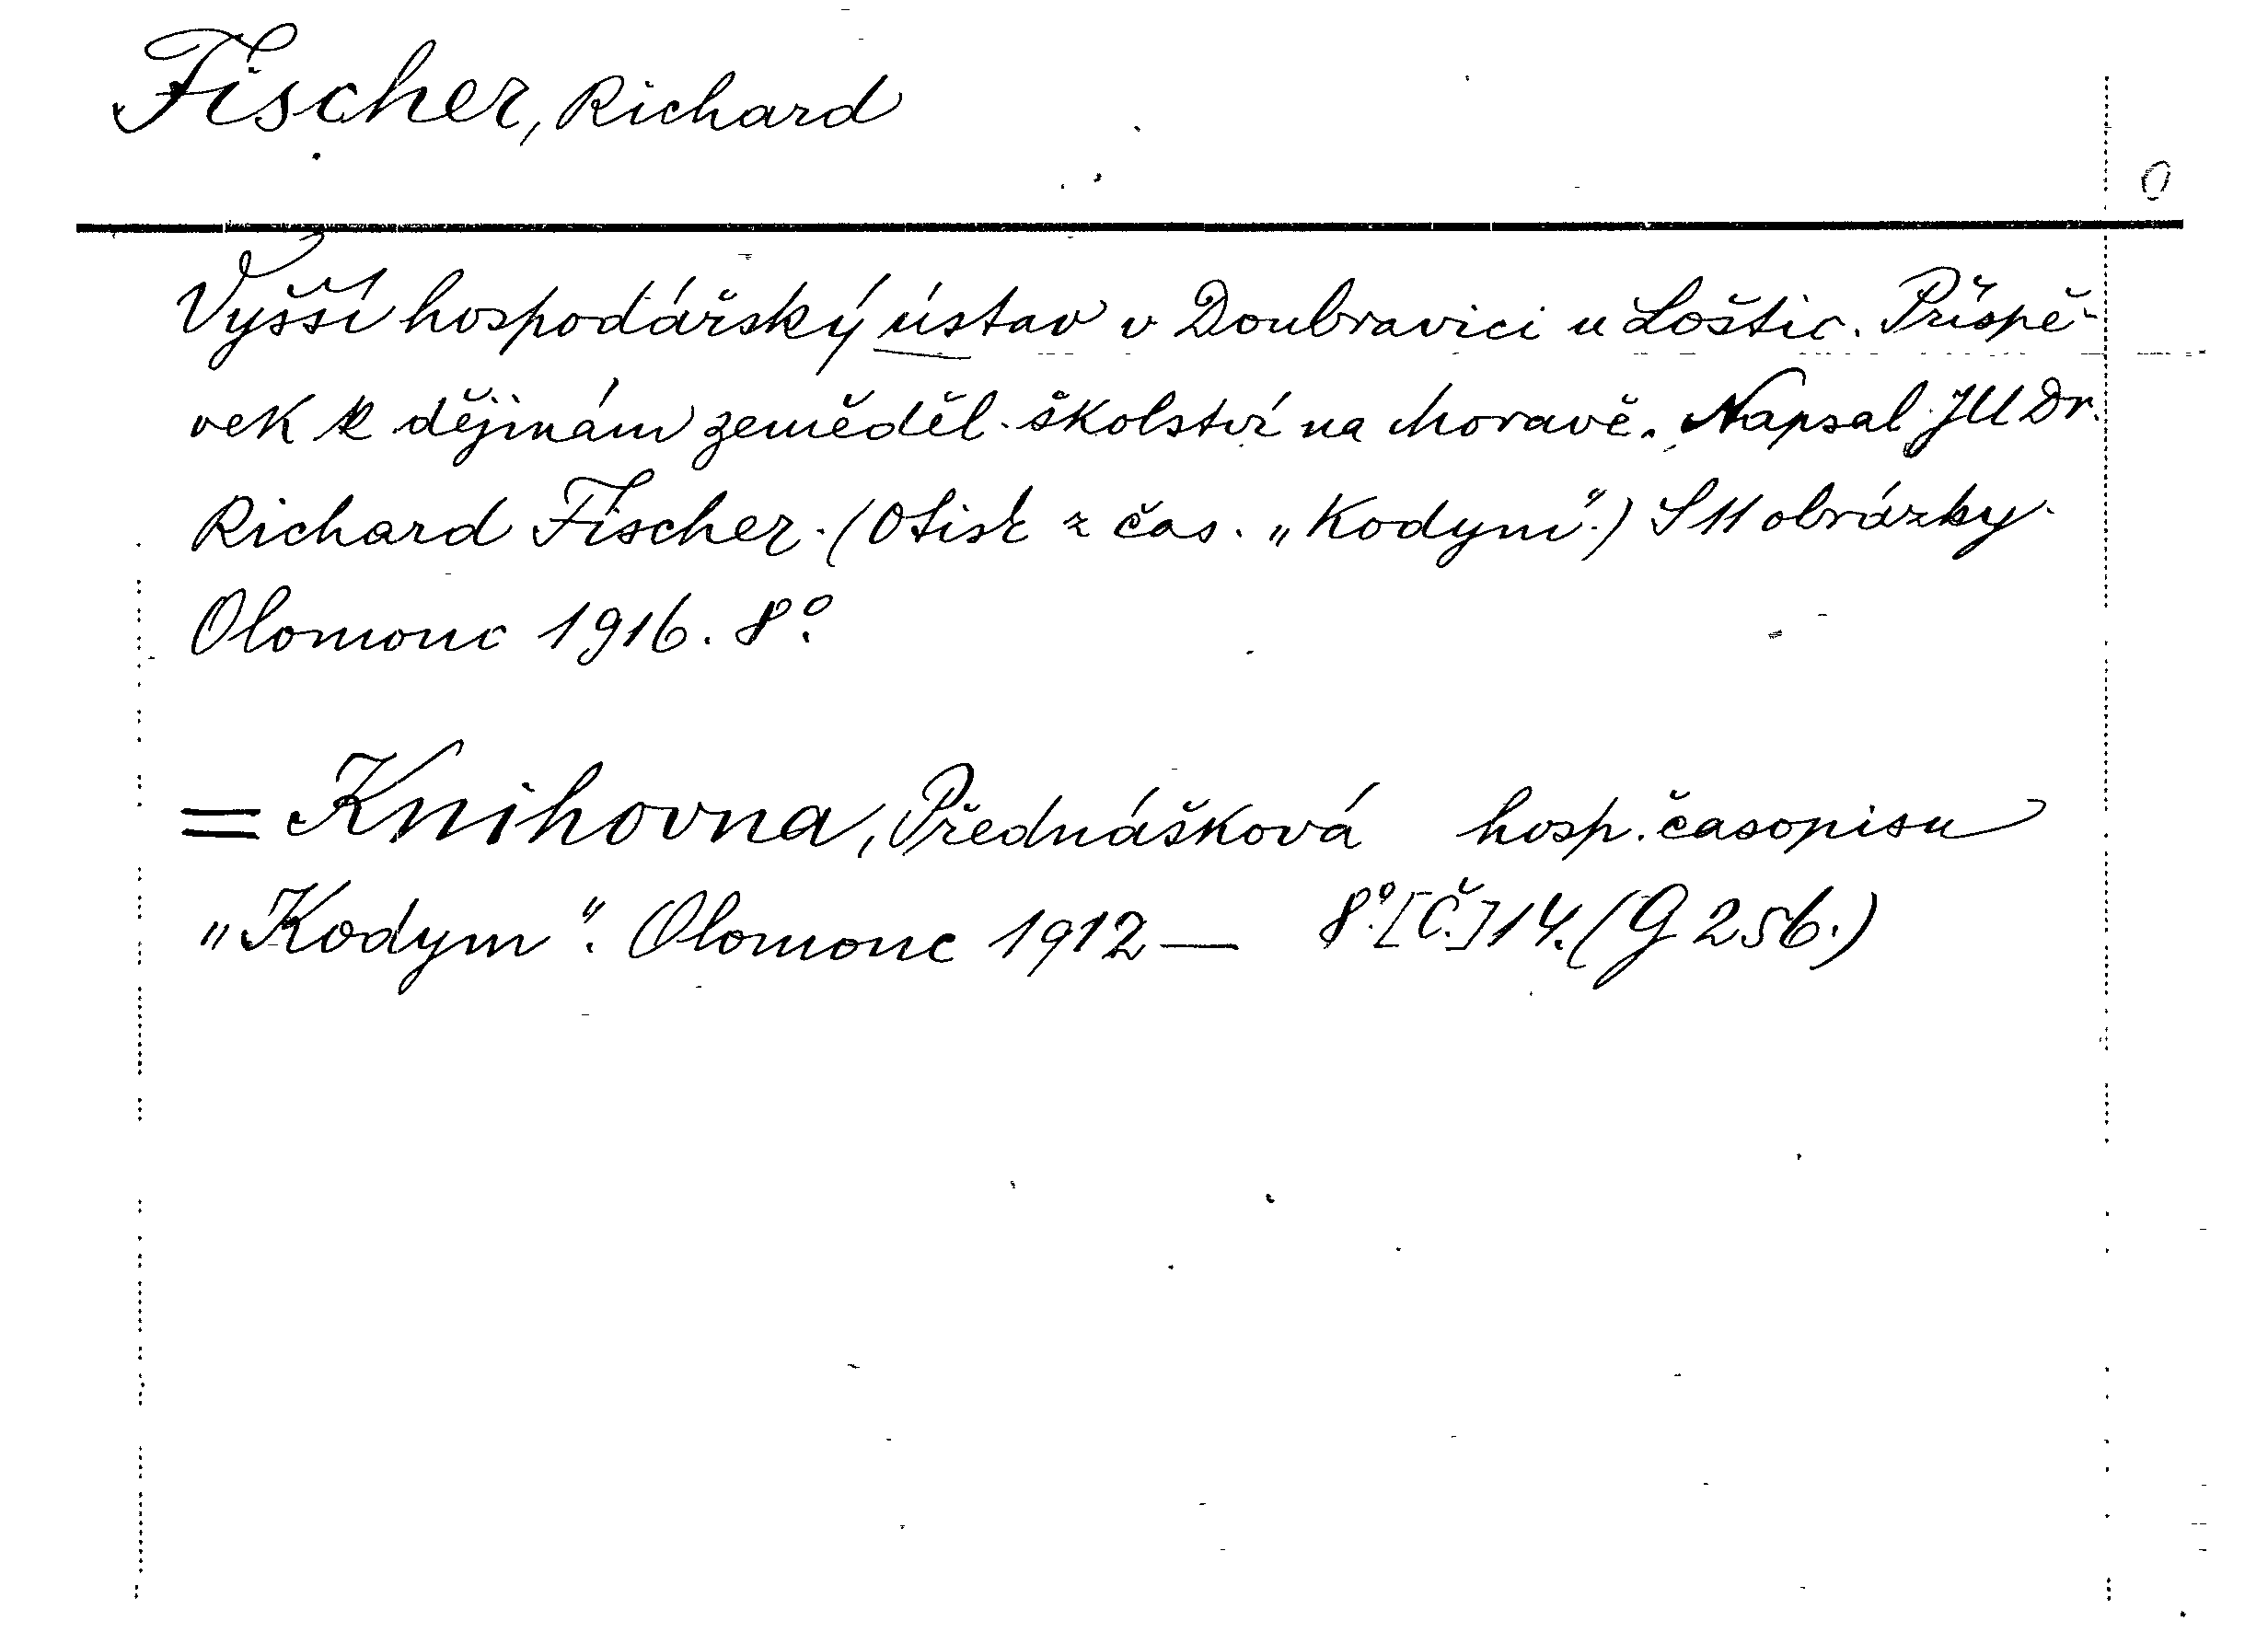 Fischer, Richard
0
Vyšší hospodářský ústav v Doubravici u Loštic. Příspě-
vek k dějinám zeměděl. školství na Moravě. Napsal JUDr.
Richard Fischer. (Otisk z čas. „Kodym“.) S 11 obrázky.
Olomouc 1916. 8°.
= Knihovna, Přednášková hosp. časopisu
„Kodym“. Olomouc 1912— 8°. [Č.] 14. (G 256.)